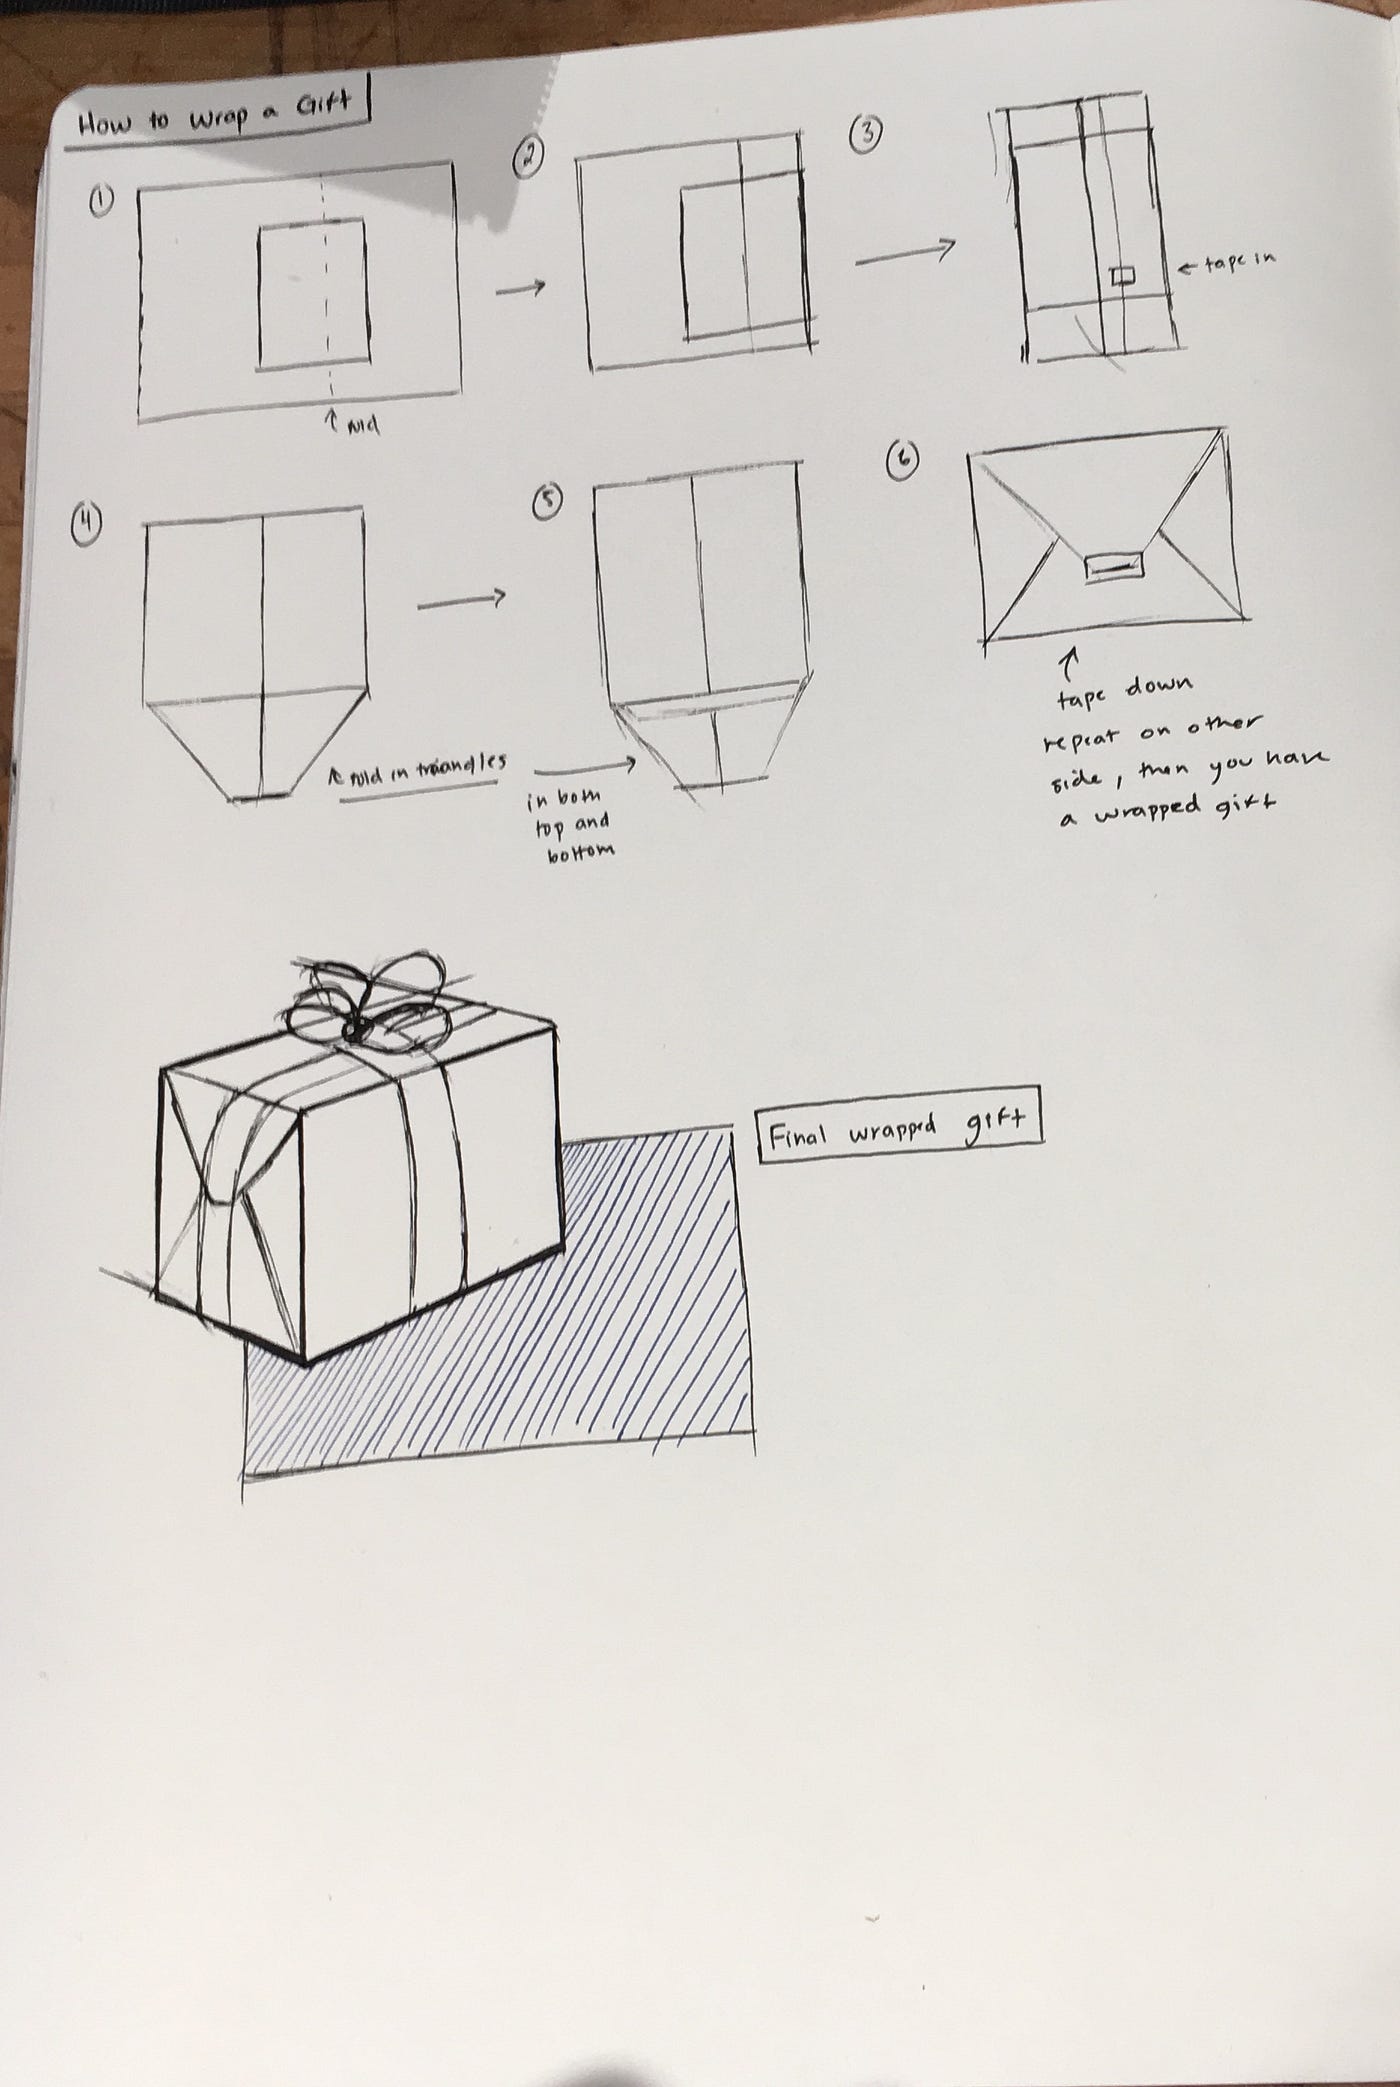 How to Wrap a Gift
1
fold
2
3
← tape in
4
fold in triangles
in both
top and
bottom
5
6
tape down
repeat on other
side, then you have
a wrapped gift
Final wrapped gift